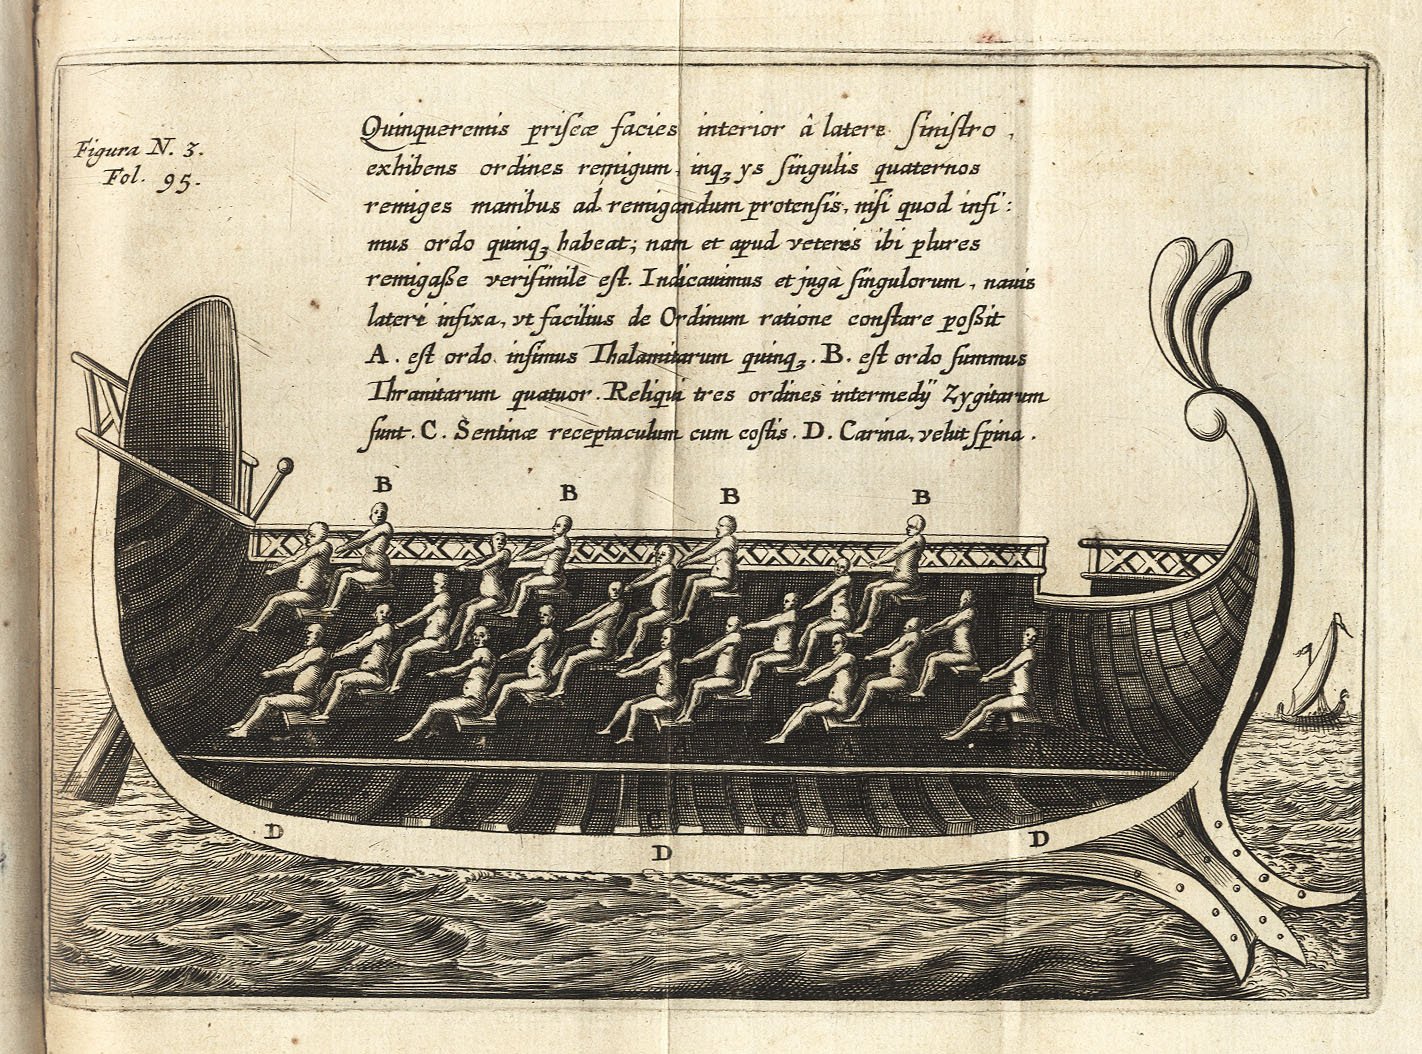 Figura N. 3.
Fol. 95.
Quinqueremis priscæ facies interior â latere sinistro,
exhibens ordines remigum, inqꝫ ys singulis quaternos
remiges manibus ad remigandum protensis, nisi quod infi:
mus ordo quinqꝫ habeat; nam et apud veteres ibi plures
remigaße verisimile est. Indicauimus et juga singulorum, nauis
lateri infixa, vt facilius de Ordinum ratione constare poßit
A. est ordo infimus Thalamitarum quinqꝫ. B. est ordo summus
Thranitarum quatuor. Reliqui tres ordines intermedÿ Zygitarum
sunt. C. Sentinæ receptaculum cum costis. D. Carina, velut spina.
B B B B
A A A A A
C C C
D D D